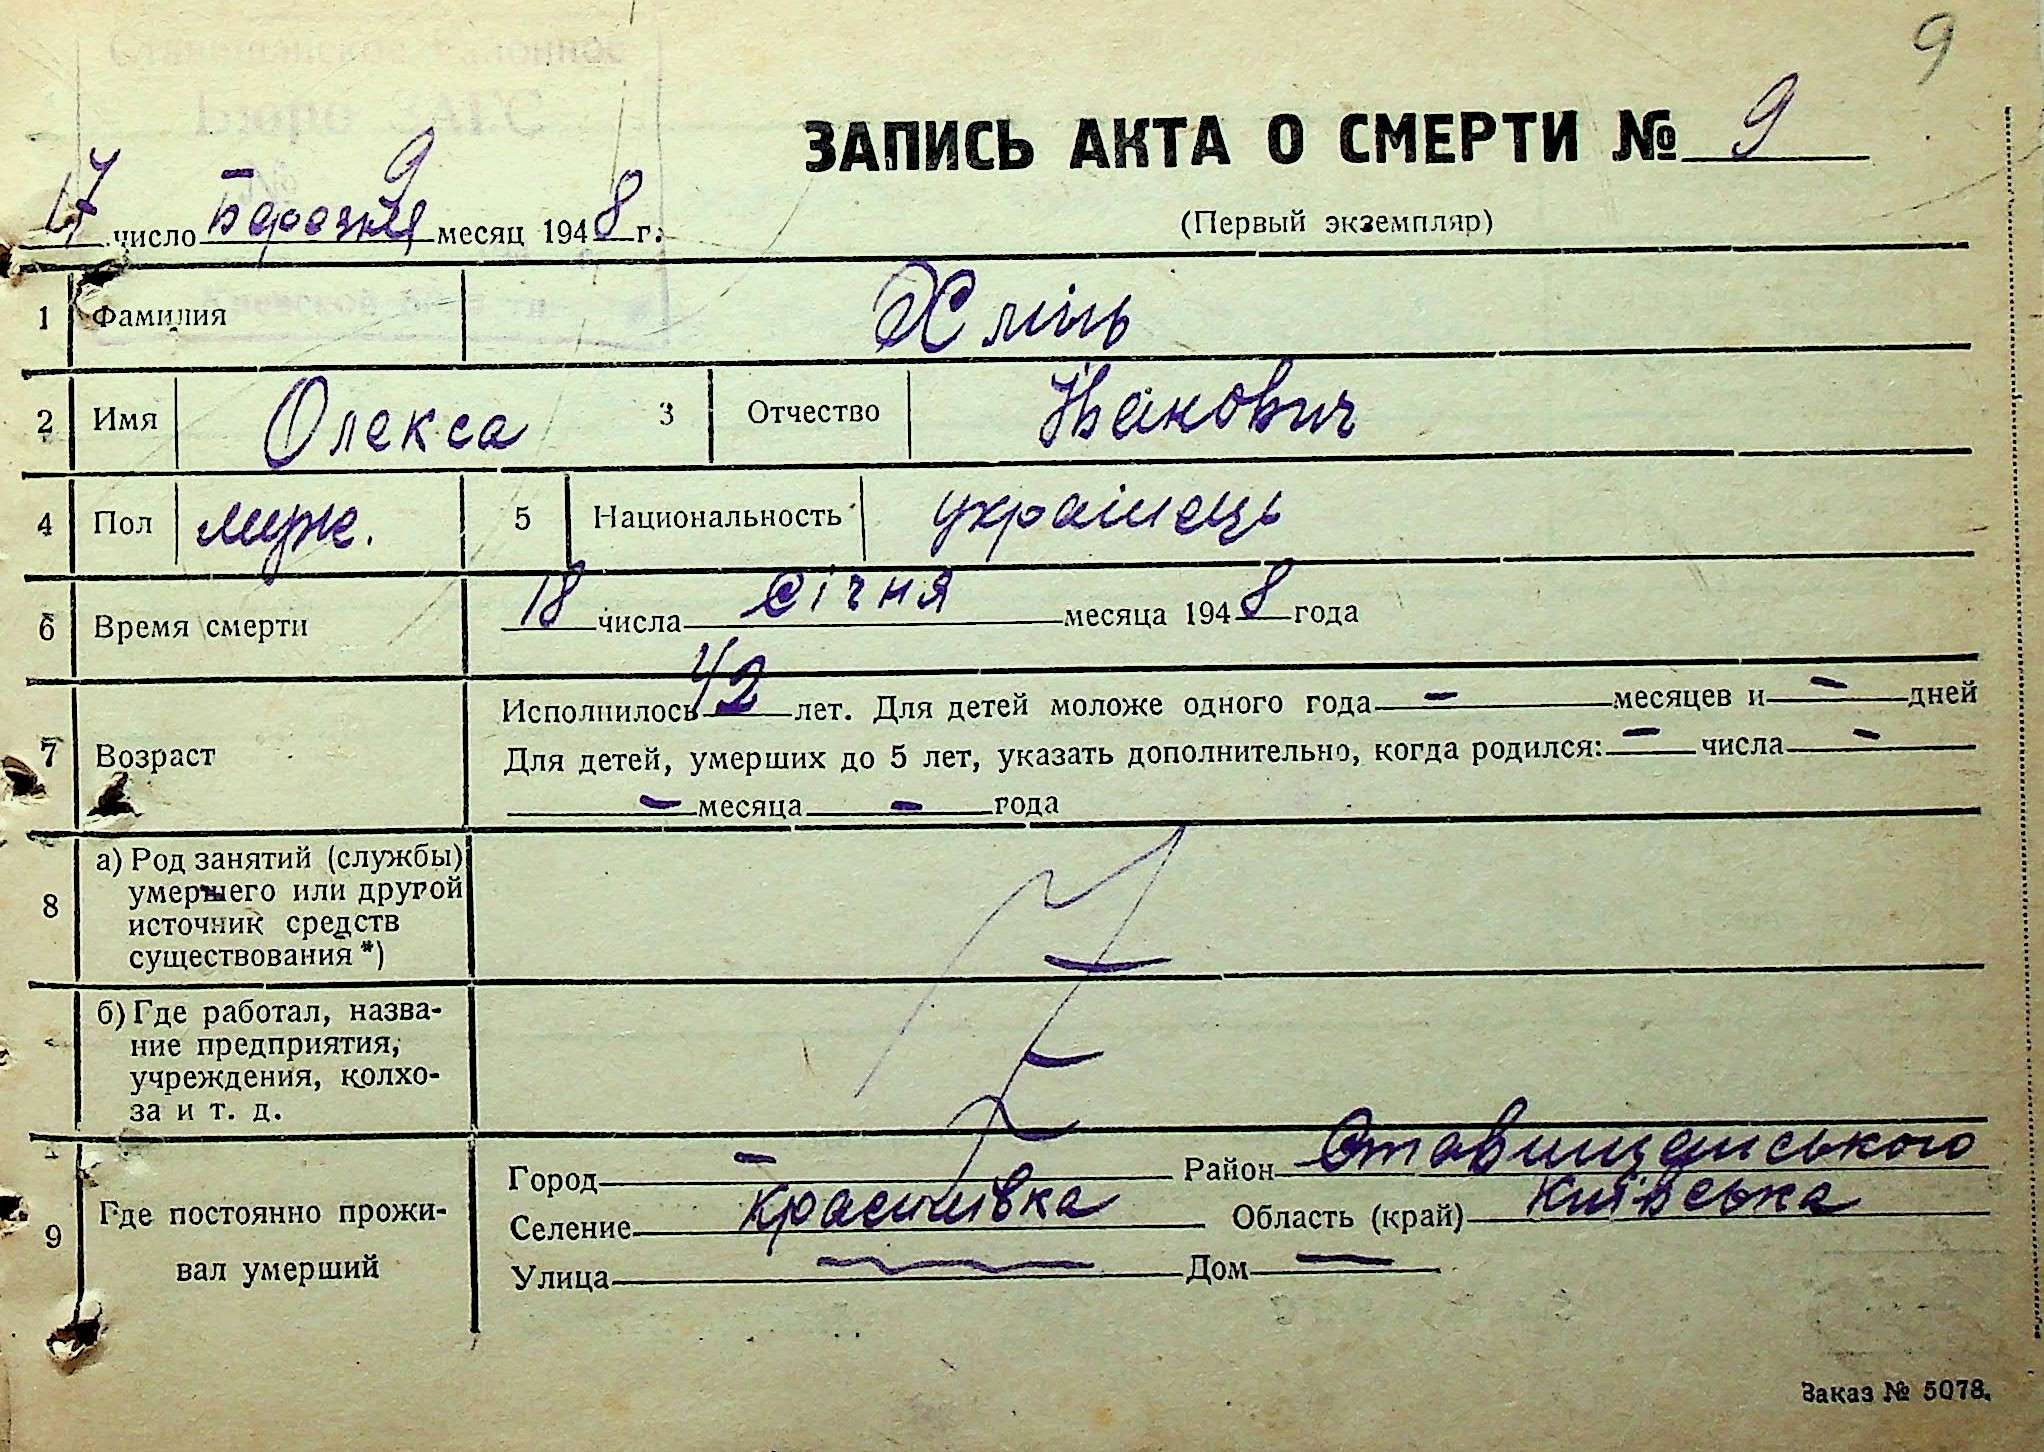 9
Бюро ЗАГС
ЗАПИСЬ АКТА О СМЕРТИ № 9
17 число Березня месяц 1948 г.
(Первый экземпляр)
1 Фамилия Хмінь
2 Имя Олекса 3 Отчество Іванович
4 Пол муж. 5 Национальность українець
6 Время смерти 18 числа січня месяца 1948 года
7 Возраст
Исполнилось 42 лет. Для детей моложе одного года — месяцев и — дней
Для детей, умерших до 5 лет, указать дополнительно, когда родился: — числа —
— месяца — года
8 а) Род занятий (службы)
умершего или другой
источник средств
существования *)
б) Где работал, назва-
ние предприятия,
учреждения, колхо-
за и т. д.
9 Где постоянно прожи-
вал умерший
Город — Район Ставищенського
Селение Красилівка Область (край) Київська
Улица Дом —
Заказ № 5078.